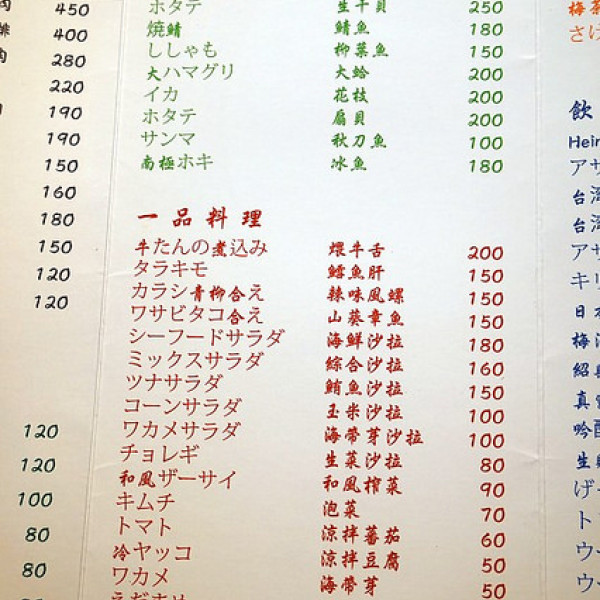 肉 450
400
肉 280
220
190
190
150
160
180
150
120
120
120
120
100
80
80
ホタテ 生干貝 250
焼鯖 鯖魚 180
ししゃも 柳葉魚 150
大ハマグリ 大蛤 200
イカ 花枝 200
ホタテ 扇貝 200
サンマ 秋刀魚 100
南極ホキ 冰魚 180
一品料理
牛たんの煮込み 煨牛舌 200
タラキモ 鱈魚肝 150
カラシ青柳合え 辣味風螺 150
ワサビタコ合え 山葵章魚 150
シーフードサラダ 海鮮沙拉 180
ミックスサラダ 綜合沙拉 160
ツナサラダ 鮪魚沙拉 150
コーンサラダ 玉米沙拉 100
ワカメサラダ 海帶芽沙拉 100
チョレギ 生菜沙拉 80
和風ザーサイ 和風榨菜 90
キムチ 泡菜 70
トマト 涼拌蕃茄 60
冷ヤッコ 涼拌豆腐 50
ワカメ 海帶芽 50
えだまめ
梅茶
さけ
飲
Hei
アサ
台湾
台湾
アサ
キリ
日本
梅酒
紹興
真
吟醸
生
げ
ト
ウー
ウー